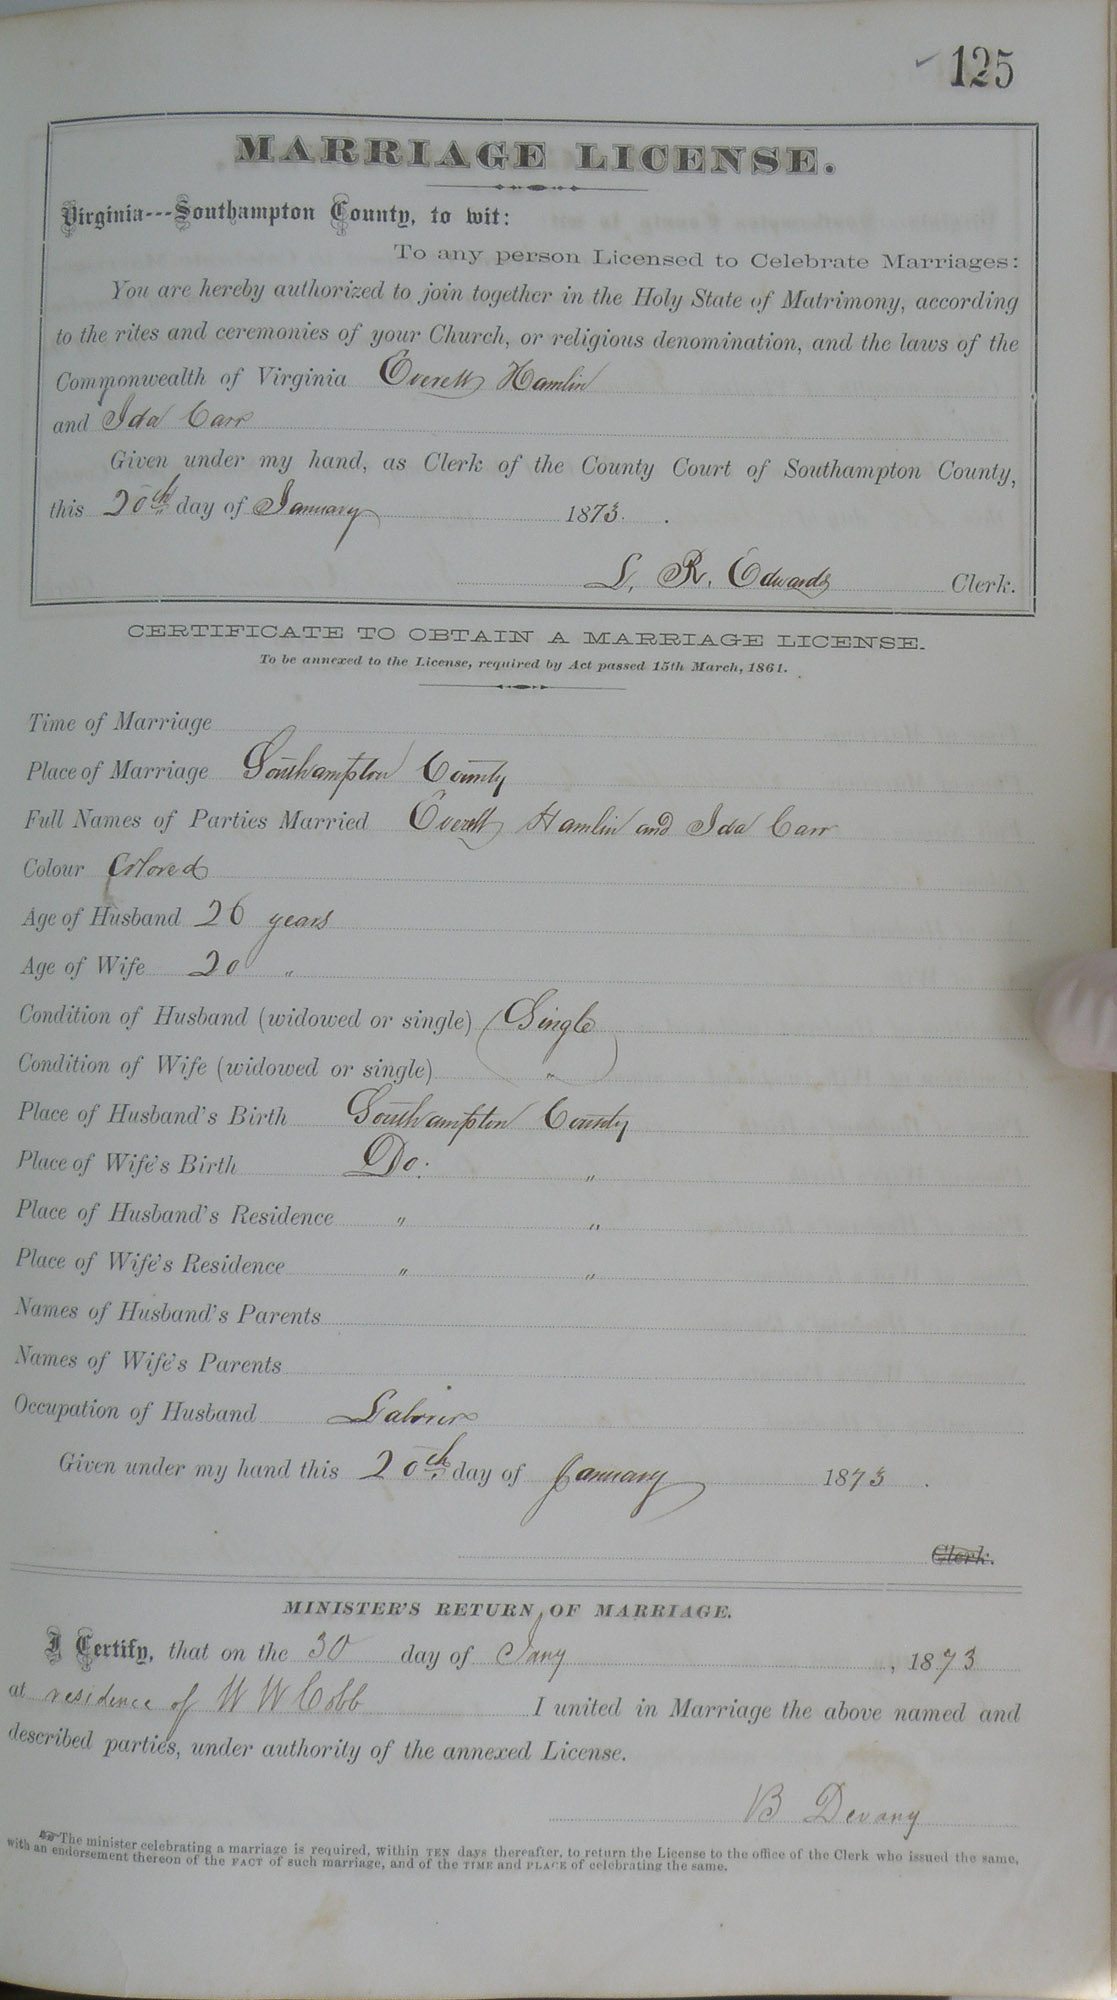 125
MARRIAGE LICENSE.
Virginia---Southampton County, to wit:
To any person Licensed to Celebrate Marriages:
You are hereby authorized to join together in the Holy State of Matrimony, according
to the rites and ceremonies of your Church, or religious denomination, and the laws of the
Commonwealth of Virginia Everett Hamlin
and Ida Carr
Given under my hand, as Clerk of the County Court of Southampton County,
this 20th day of January 1873.
L. R. Edwards Clerk.
CERTIFICATE TO OBTAIN A MARRIAGE LICENSE.
To be annexed to the License, required by Act passed 15th March, 1861.
Time of Marriage
Place of Marriage Southampton County
Full Names of Parties Married Everett Hamlin and Ida Carr
Colour Colored
Age of Husband 26 years
Age of Wife 20 "
Condition of Husband (widowed or single) (Single
Condition of Wife (widowed or single) " )
Place of Husband's Birth Southampton County
Place of Wife's Birth Do. "
Place of Husband's Residence " "
Place of Wife's Residence " "
Names of Husband's Parents
Names of Wife's Parents
Occupation of Husband Laborer
Given under my hand this 20th day of January 1873.
Clerk.
MINISTER'S RETURN OF MARRIAGE.
I Certify, that on the 30 day of Jany, 1873
at residence of W W Cobb I united in Marriage the above named and
described parties, under authority of the annexed License.
B Devany
The minister celebrating a marriage is required, within TEN days thereafter, to return the License to the office of the Clerk who issued the same,
with an endorsement thereon of the FACT of such marriage, and of the TIME and PLACE of celebrating the same.